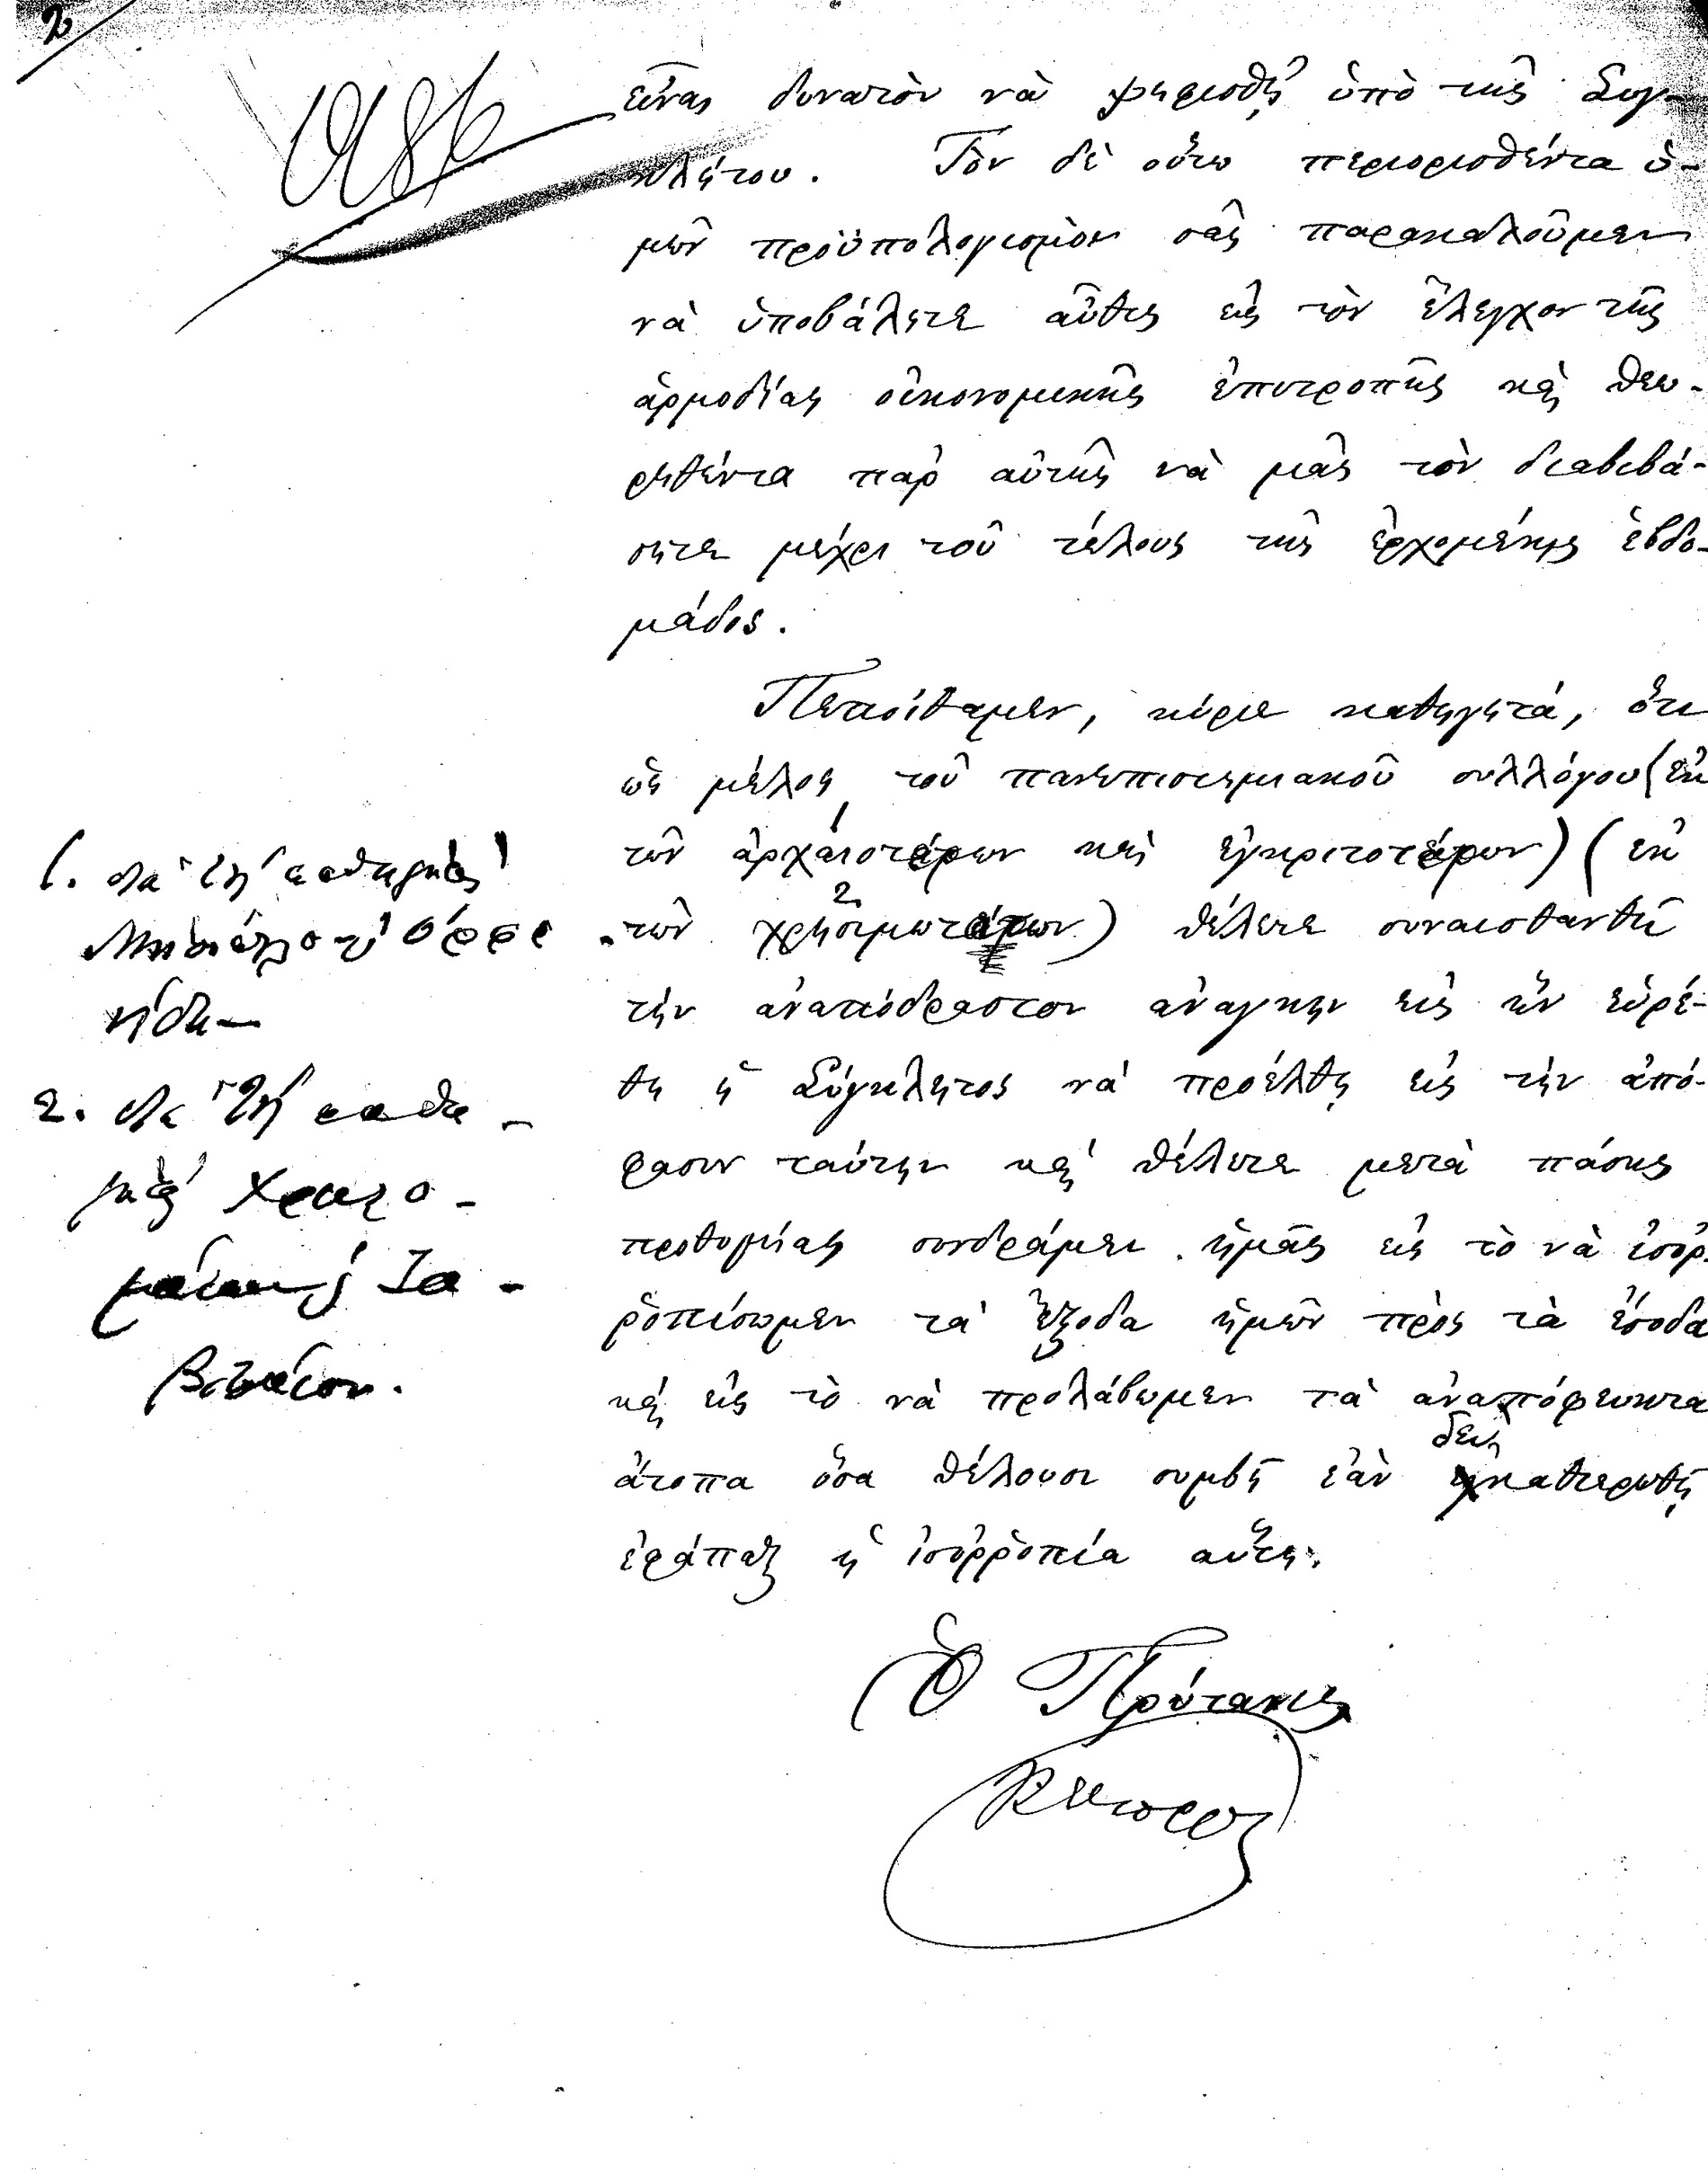 2
εἶναι δυνατὸν νὰ ψηφισθῇ ὑπὸ τῆς Συγ-
κλήτου. Τὸν δὲ οὕτω περιορισθέντα ὑ-
μῶν προϋπολογισμὸν σᾶς παρακαλοῦμεν
νὰ ὑποβάλητε αὖθις εἰς τὸν ἔλεγχον τῆς
ἁρμοδίας οἰκονομικῆς ἐπιτροπῆς καὶ θεω-
ρηθέντα παρ' αὐτῆς νὰ μᾶς τὸν διαβιβά-
σητε μέχρι τοῦ τέλους τῆς ἐρχομένης ἑβδο-
μάδος.
Πεποίθαμεν, κύριε καθηγητά, ὅτι
ὡς μέλος τοῦ πανεπιστημιακοῦ συλλόγου (ἐκ
τῶν ἀρχαιοτέρων καὶ ἐγκριτοτέρων) 1 (ἐκ
τῶν χρησιμωτάτων) 2 θέλετε συναισθανθῆ
τὴν ἀναπόδραστον ἀνάγκην εἰς ἣν εὑρέ-
θη ἡ Σύγκλητος νὰ προέλθῃ εἰς τὴν ἀπό-
φασιν ταύτην καὶ θέλετε μετὰ πάσης
προθυμίας συνδράμει ἡμᾶς εἰς τὸ νὰ ἰσορ-
ροπίσωμεν τὰ ἔξοδα ἡμῶν πρὸς τὰ ἔσοδα
καὶ εἰς τὸ νὰ προλάβωμεν τὰ ἀναπόφευκτα
ἄτοπα ὅσα θέλουσι συμβῆ ἐὰν δὲν καθιερωθῇ
ἐφάπαξ ἡ ἰσορροπία αὕτη.
Ὁ Πρύτανις
1. διὰ τὸν καθηγητὰς
2. διὰ τὸν καθη-
γητὰς Χρηστο-
μάνον